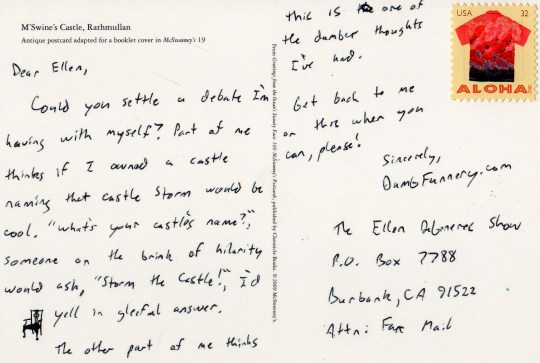 M'Swine's Castle, Rathmullan
Antique postcard adapted for a booklet cover in McSweeney's 19
Dear Ellen,
Could you settle a debate I'm
having with myself? Part of me
thinks if I owned a castle
naming that castle Storm would be
cool. "What's your castle's name?",
someone on the brink of hilarity
would ask, "Storm the Castle!", I'd
yell in gleeful answer.
The other part of me thinks
this is one of
the dumber thoughts
I've had.
Get back to me
on this when you
can, please!
Sincerely,
DumbFunnery.com
The Ellen DeGeneres Show
P.O. Box 7788
Burbank, CA 91522
Attn: Fan Mail
From Greetings from the Ocean's Sweaty Face: 100 McSweeney's Postcards, published by Chronicle Books. © 2009 McSweeney's.
USA 32
ALOHA